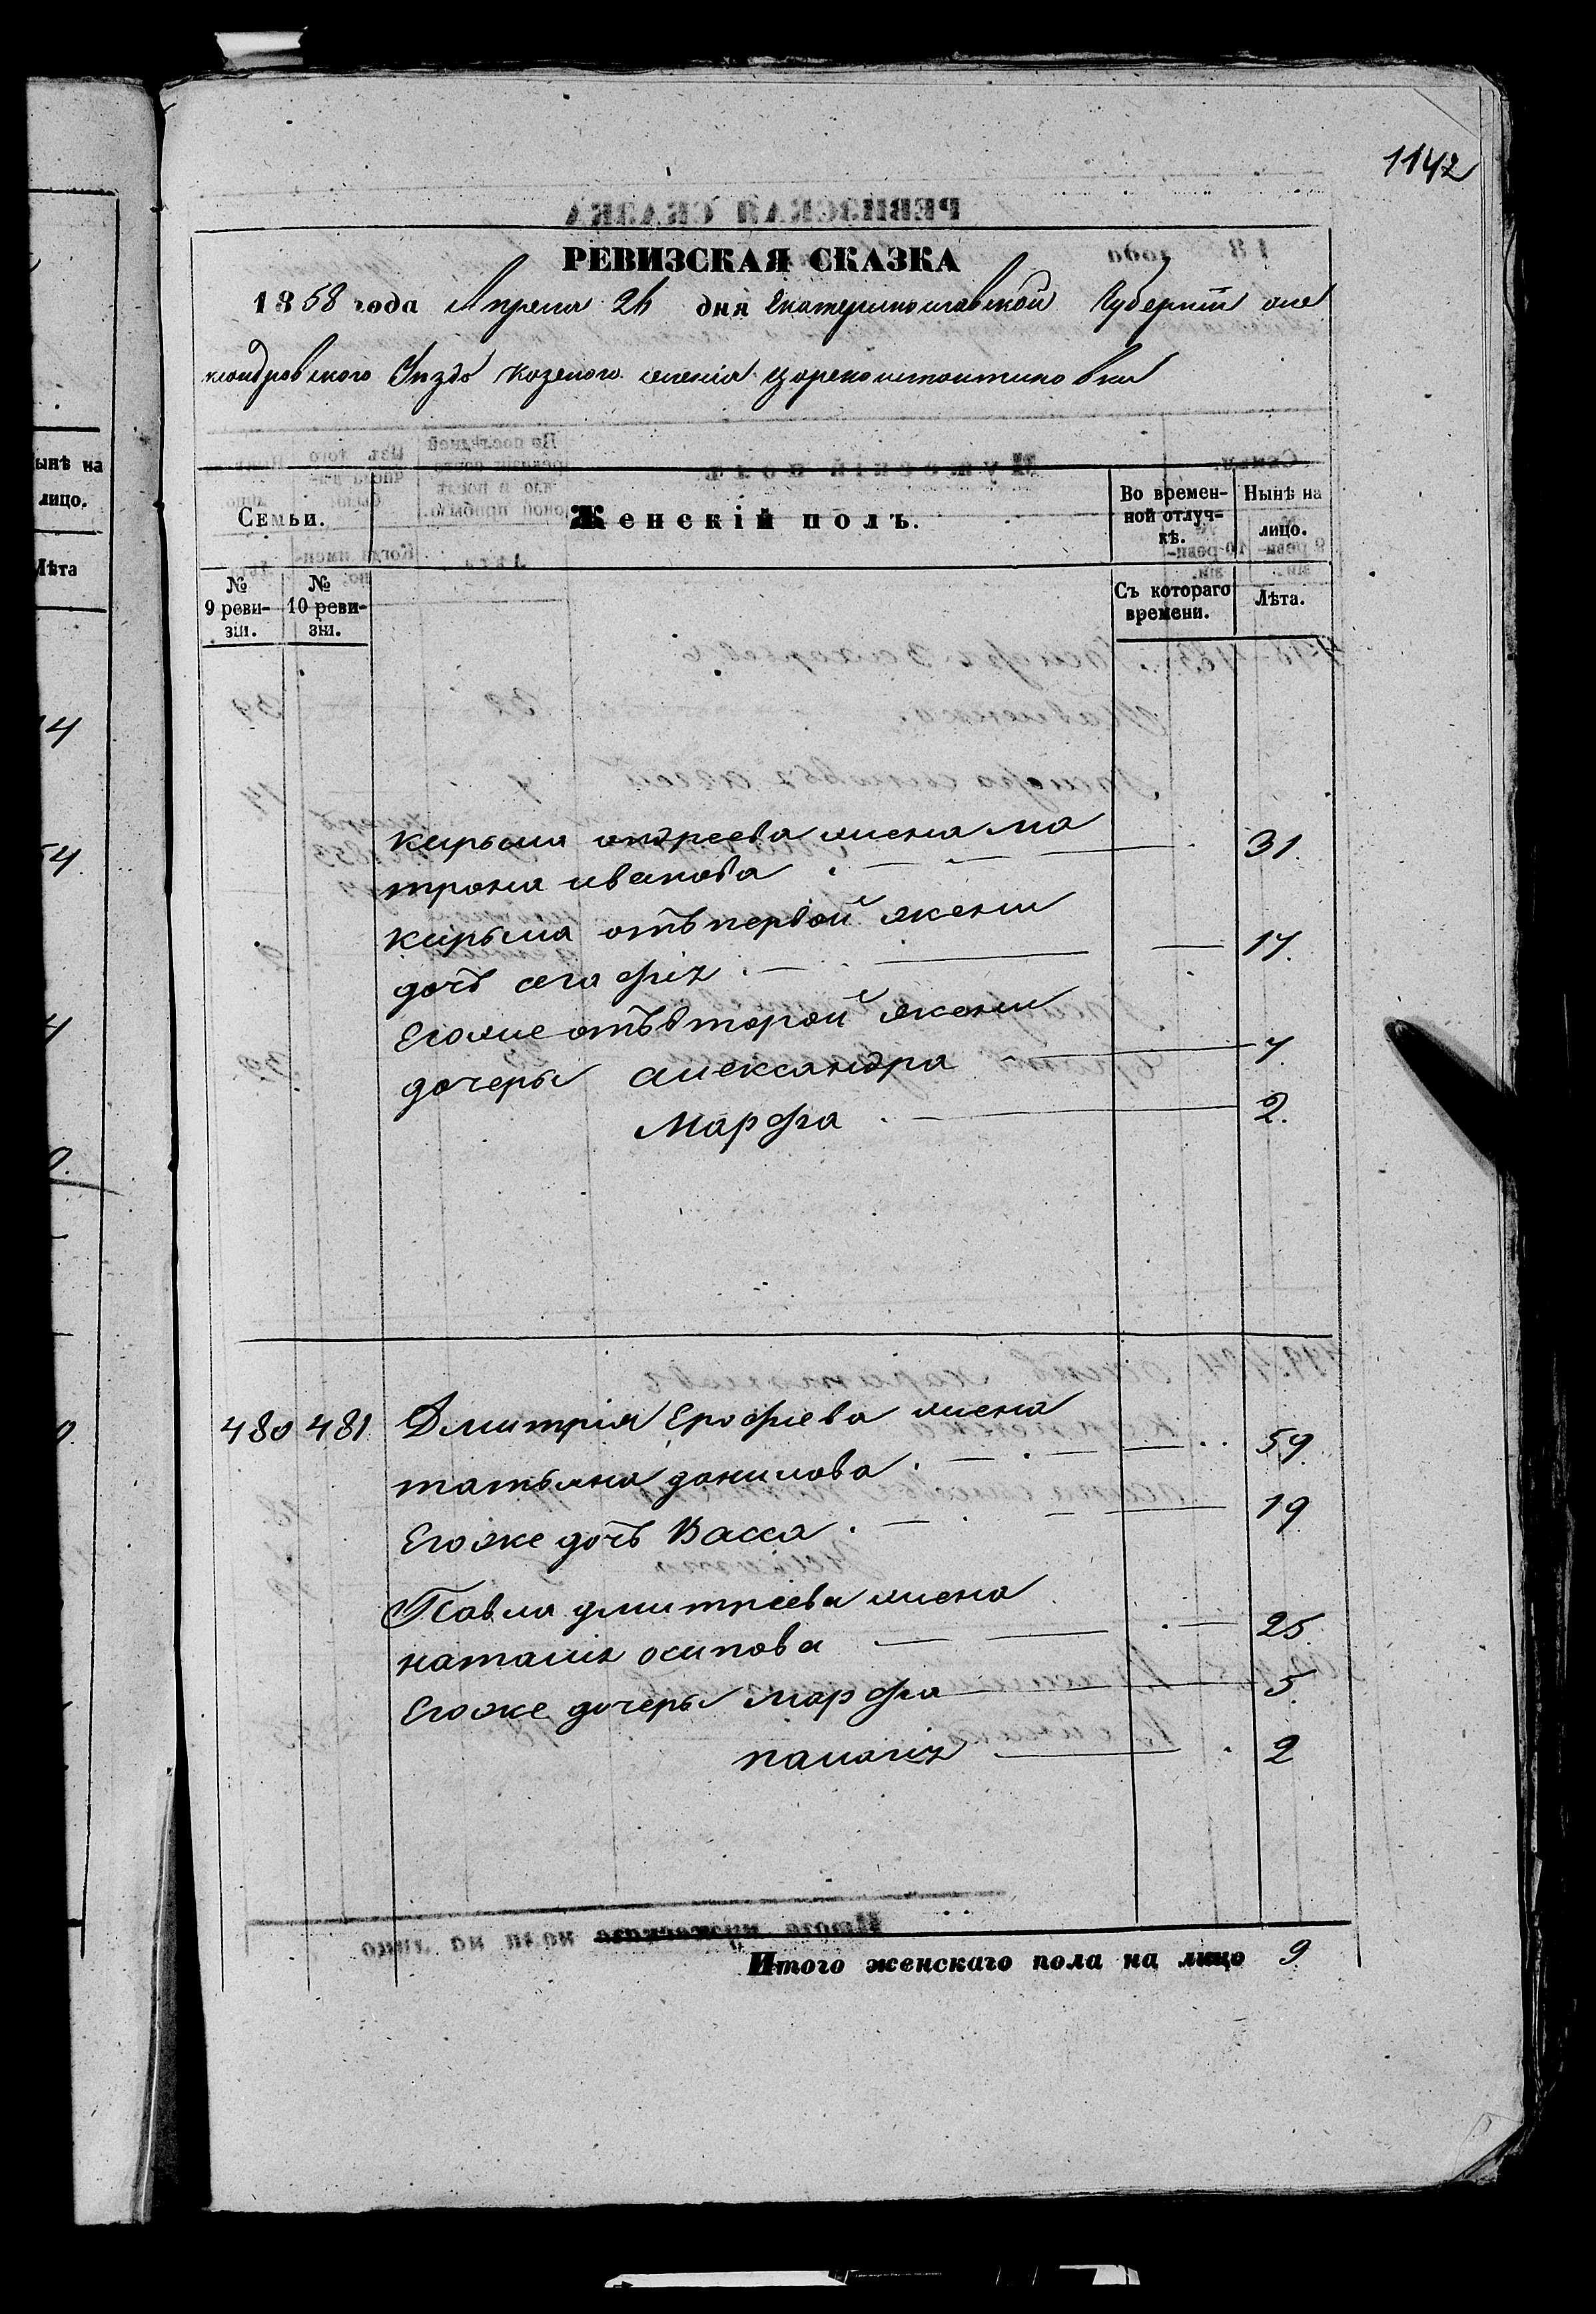 1142
РЕВИЗСКАЯ СКАЗКА
1858 года Апреля 26 дня Екатеринославской Губернии але
ксандровского Уезда Казеного селения Цареконстантиновки
Семьи.
Женскій полъ.
Во времен-
ной отлуч-
кѣ.
Нынѣ на
лицо.
№
9 реви-
зіи.
№
10 реви-
зіи.
Съ котораго
времени.
Лѣта.
кирыла андреева жена ма
трона иванова 31.
кирыла отъ первой жени
дочъ 17.
Егоже отъ второй жени
дочеры александра 7.
марфа 2.
480 481 Дмитрія Ерофіева жена
татьяна данилова 59.
Егоже дочъ Васса 19
Павла дмитріева жена
наталія осипова 25.
Егоже дочеры марфа 5.
палагія 2
Итого женскаго пола на лицо 9
ынѣ на
лицо.
Лѣта